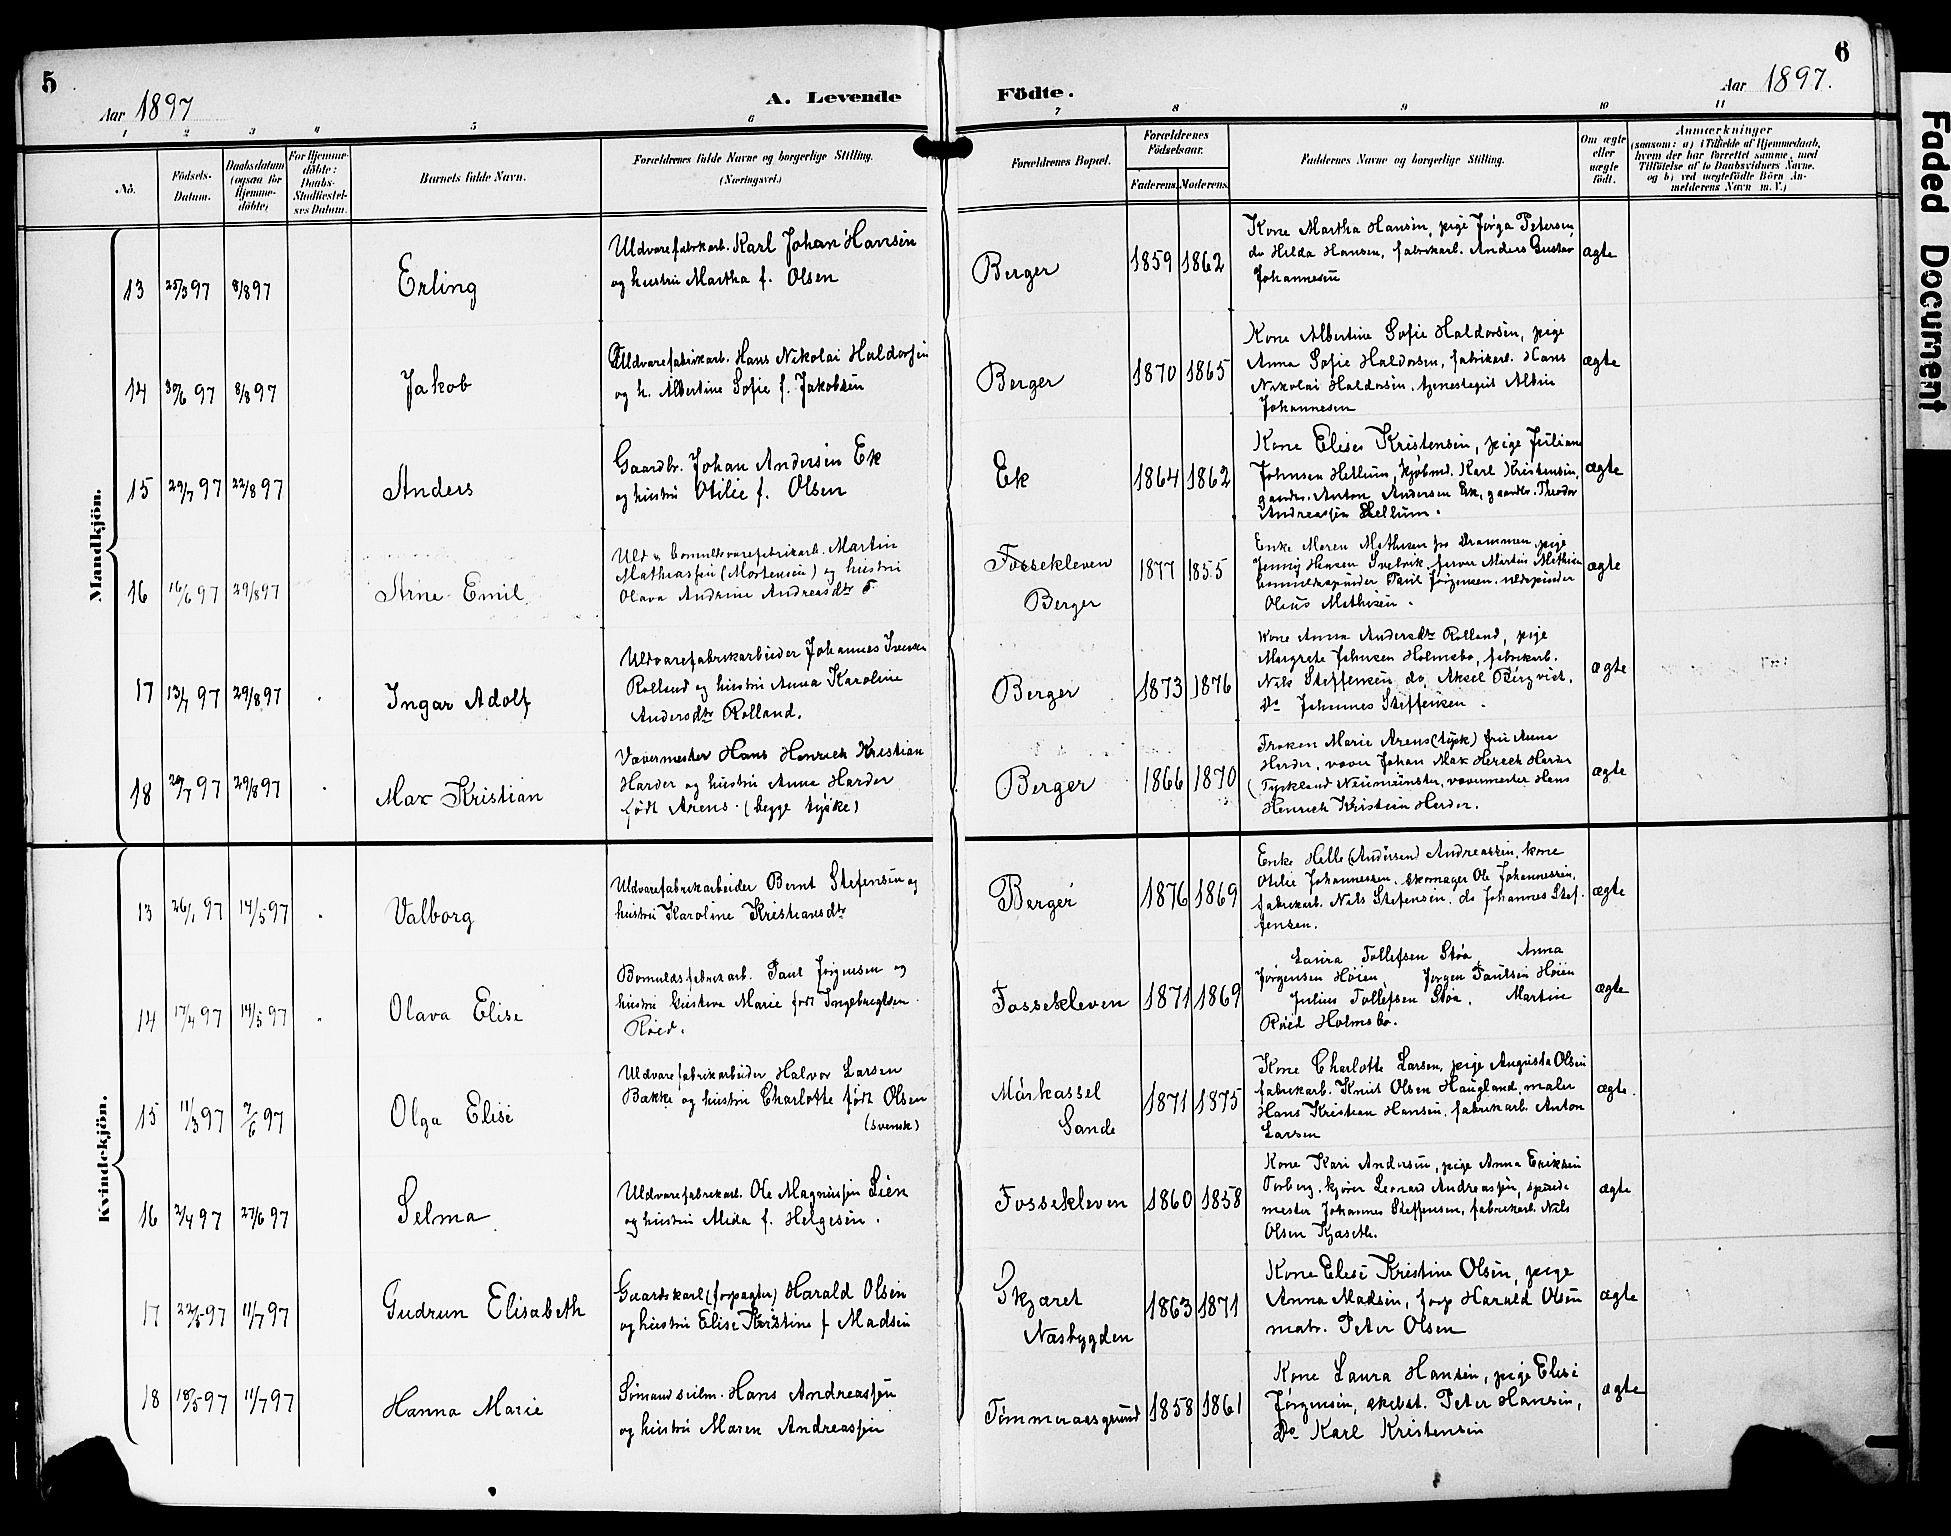 5
Aar 1897
A. Levende
Födte.
Aar 1897.
6
Faded Document
1 2 3 4 5 6 7 8 9 10 11
No.
Födsels-
Datum.
Daabsdatum
(ogsaa for
Hjemme-
döbte)
For Hjemme-
döbte:
Daabs-
Stadfæstel-
ses Datum.
Barnets fulde Navn.
Forældrenes fulde Navne og borgerlige Stilling.
(Næringsvei.)
Forældrenes Bopæl.
Forældrenes
Födselsaar.
Faderens. Moderens.
Faddernes Navne og borgerlige Stilling.
Om ægte
eller
uægte
födt.
Anmærkninger
(saasom: a) i Tilfælde af Hjemmedaab,
hvem der har forrettet samme, med
Tilföielse af to Daabsvidners Navne,
og b) ved uægtefödte Börn An-
melderens Navn m. V.)
Mandkjön.
13 25/3 97 8/8 97
Erling
Uldvarefabrikarb. Karl Johan Hansen
og hustru Martha f. Olsen
Berger
1859 1862
Kone Martha Hansen, pige Jørga Petersen,
do Hilda Hansen, fabrikarb. Anders Gustav
Johannesen
ægte
14 30/6 97 8/8 97
Jakob
Uldvarefabrikarb. Hans Nikolai Haldorsen
og h. Albertine Sofie f. Jakobsen
Berger
1870 1865
Kone Albertine Sofie Haldorsen, pige
Anna Sofie Haldorsen, fabrikarb. Hans
Nikolai Haldorsen, tjenestegut Albin
Johannesen
ægte
15 29/7 97 22/8 97
Anders
Gaardbr. Johan Andersen Ek
og hustru Otilie f. Olsen
Ek
1864 1862
Kone Elise Kristensen, pige Juliane
Johnsen Hellum, kjøbmd. Karl Kristensen,
gaardbr. Anton Andersen Ek, gaardbr. Theodor
Andreassen Hellum.
ægte
16 16/6 97 29/8 97
Arne Emil
Uld & bomuldsvarefabrikarb. Martin
Mathiassen (Mortensen) og hustru
Olava Andrine Andreasdtr
Fossekleven
Berger
1877 1855
Enke Maren Mathisen fra Drammen, pige
Jenny Hansen Svelvik, farver Martin Mathisen
bomuldsspinder Paul Jørgensen, uldspinder
Olaus Mathisen.
ægte
17 13/7 97 29/8 97
Ingar Adolf
Uldvarefabrikarbeider Johannes Iversen
Rolland og hustru Anna Karoline
Andersdtr Rolland.
Berger
1873 1876
Kone Anna Andersdtr Rolland, pige
Margrete Johnsen Holmsbo, fabrikarb.
Nils Steffensen do, Aksel Bergvist,
Do Johannes Steffensen.
ægte
18 29/7 97 29/8 97
Max Kristian
Vævermester Hans Henrich Kristian
Harder og hustru Anna Harder
født Arens. (begge tyske)
Berger
1866 1870
Frøken Marie Arens (tysk) frue Anna
Harder, væver Johan Max Herich Harder
(Tyskland Neumünster, vævermester Hans
Henrich Kristian Harder.
ægte
Kvindekjön.
13 26/1 97 14/5 97
Valborg
Uldvarefabrikarbeider Bernt Stefensen og
hustru Karoline Kristiansdtr
Berger
1876 1869
Enke Helle (Andersen) Andreassen, kone
Otilie Johannessen, skomager Ole Johannessen,
fabrikarb. Nils Stefensen, do Johannes Stef-
fensen.
ægte
14 17/4 97 14/5 97
Olava Elise
Bomuldsfabrikarb. Paul Jørgensen og
hustru Gustava Marie født Ingebregtsen
Røed.
Fossekleven
1871 1869
Laura Tollefsen Støa, Anna
Jørgensen Høien, Jørgen Paulsen Høien
Julius Tollefsen Støa, Martin
Røed Holmsbo.
ægte
15 11/3 97 7/6 97
Olga Elise
Uldvarefabrikarbeider Halvor Larsen
Bakke og hustru Charlotte født Olsen
(svensk)
Märkassel
Sande
1871 1875
Kone Charlotte Larsen, pige Augusta Olsen
fabrikarb. Knut Olsen Haugland, maler
Hans Kristian Hansen, fabrikarb. Anton
Larsen
ægte.
16 2/4 97 27/6 97
Selma
Uldvarefabrikarb. Ole Magnussen Lien
og hustru Alida f. Helgesen.
Fossekleven
1860 1858
Kone Kari Andersen, pige Anna Eriksen
Torberg, kjører Leonard Andreassen, spinde
mester Johannes Steffensen, fabrikarb. Nils
Olsen Kjaseth.
ægte
17 22/5 97 11/7 97
Gudrun Elisabeth
Gaardskarl (forpagter) Harald Olsen
og hustru Elise Kristine f Madsen
Skjæret
Næsbygden
1863 1871
Kone Elise Kristine Olsen, pige
Anna Madsen, forp Harald Olsen
matr. Peter Olsen
ægte
18 18/5 97 11/7 97
Hanna Marie
Sømand seilm. Hans Andreassen
og hustru Maren Andreassen
Tømmeraasgrund
1858 1861
Kone Laura Hansen, pige Elise
Jørgensen, skibst. Peter Hansen,
Do Karl Kristensen
ægte